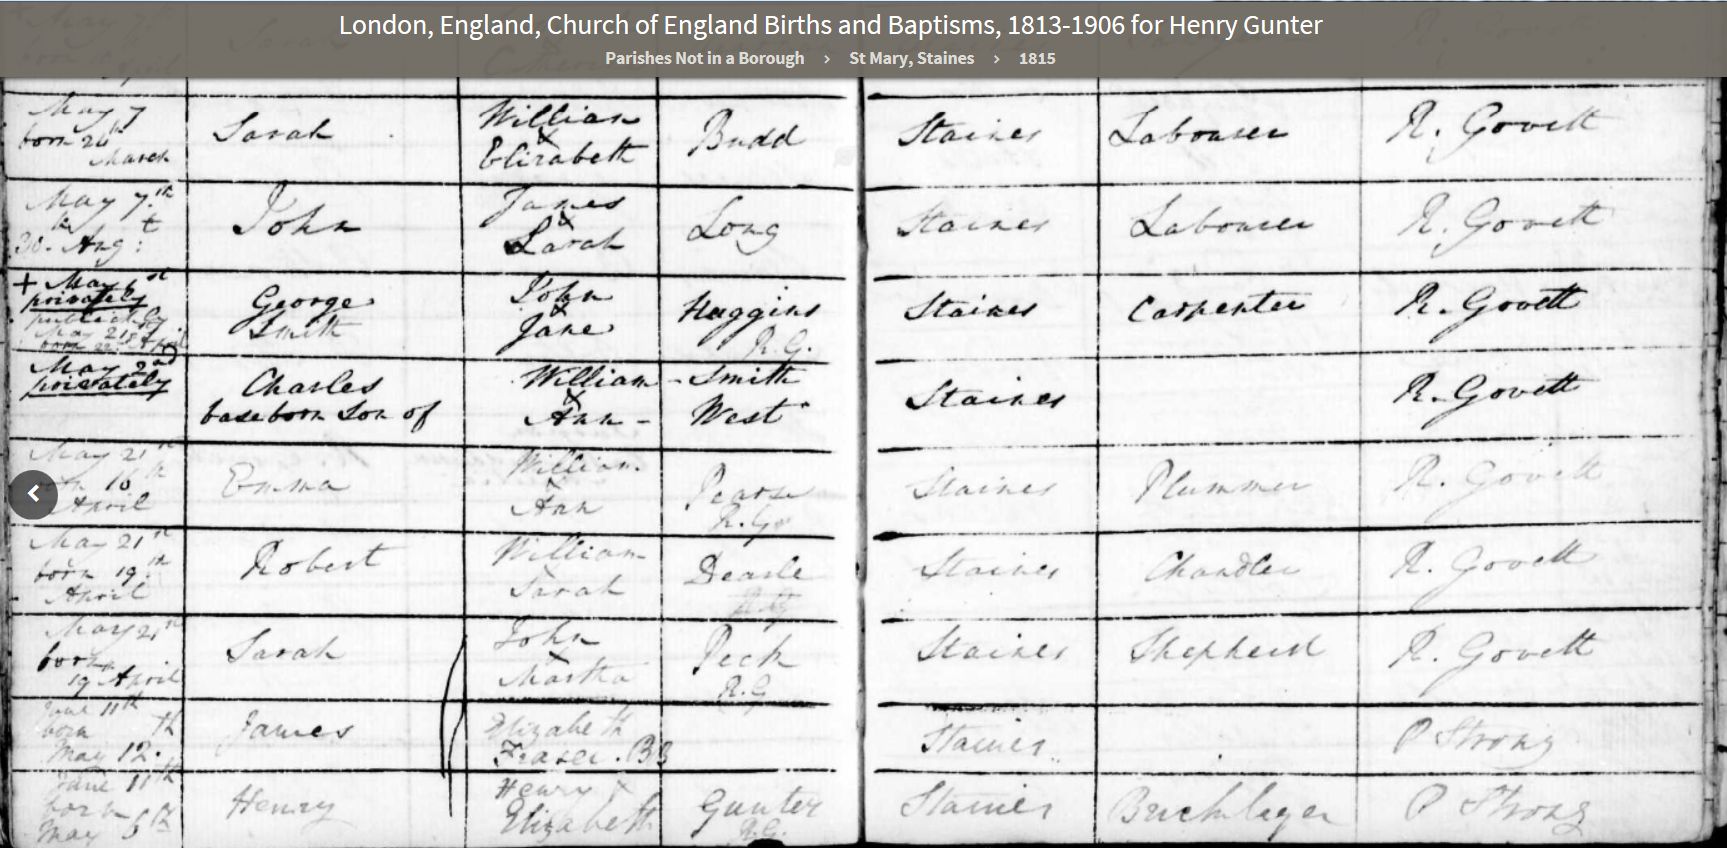 London, England, Church of England Births and Baptisms, 1813-1906 for Henry Gunter
Parishes Not in a Borough › St Mary, Staines › 1815
May 7
born 26th
March
Sarah
William
&
Elizabeth
Budd
Staines
Labourer
R. Govett
May 7th
30. Aug:t
John
James
&
Sarah
Long
Staines
Labourer
R. Govett
+ May
privately
publickly
May 21st
born 22d April
George
Smith
John
&
Jane
Huggins
R.G.
Staines
Carpenter
R. Govett
May 2nd
privately
Charles
baseborn Son of
William - Smith
&
Ann - West
Staines
R. Govett
May 21
born 16th
April
Emma
William
&
Ann
Pearse
R. G
Staines
Plummer
R. Govett
May 21st
born 19th
April
Robert
William
Sarah
Dearle
Staines
Chandler
R. Govett
May 21st
born
19 April
Sarah
John
&
Martha
Peck
R.G
Staines
Shepherd
R. Govett
June 11th
born
May 12th
James
Elizabeth
Fraser. BB
Staines
P Strong
June 11th
born
May 6th
Henry
Henry &
Elizabeth
Gunter
R.G.
Staines
Bricklayer
P Strong